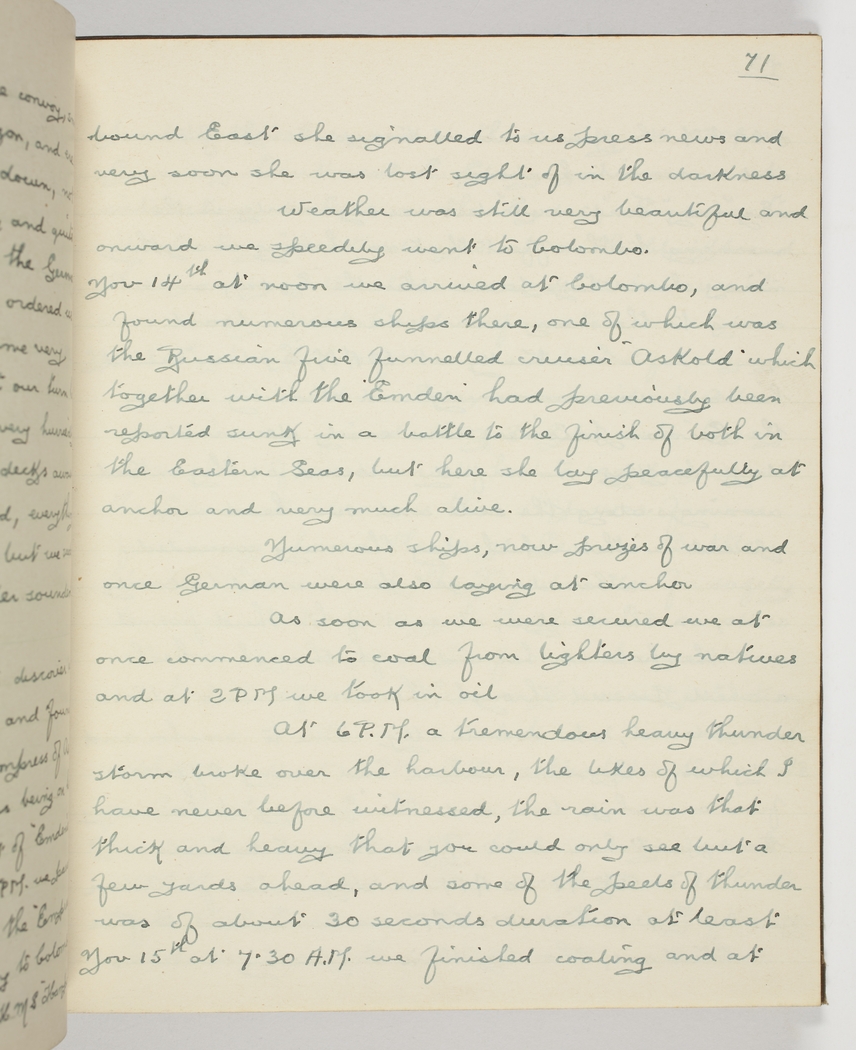 71
bound East she signalled to us press news and
very soon she was lost sight of in the darkness
Weather was still very beautiful and
onward we speedily went to Colombo.
Nov 14th at noon we arrived at Colombo, and
found numerous ships there, one of which was
the Russian five funnelled cruiser "Askold" which
together with the "Emden" had previously been
reported sunk in a battle to the finish of both in
the Eastern Seas, but here she lay peacefully at
anchor and very much alive.
Numerous ships, now prizes of war and
once German were also laying at anchor
As soon as we were secured we at
once commenced to coal from lighters by natives
and at 2 PM we took in oil
At 6 P.M. a tremendous heavy thunder
storm broke over the harbour, the likes of which I
have never before witnessed, the rain was that
thick and heavy that you could only see but a
few yards ahead, and some of the peels of thunder
was of about 30 seconds duration at least
Nov 15th at 7.30 A.M. we finished coaling and at